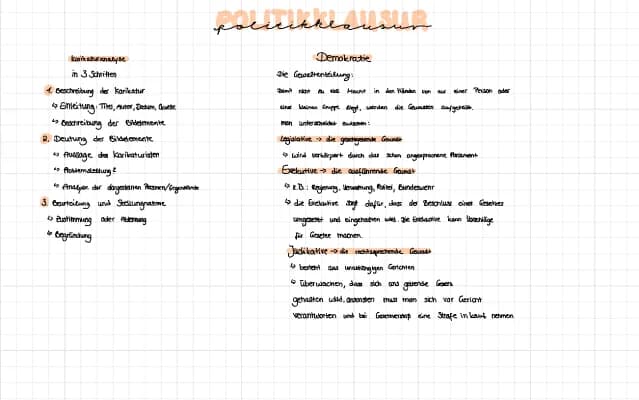 POLITIKKLAUSUR
politikklausur
Karikaturanalyse
in 3 Schritten
1. Beschreibung der Karikatur
↳ Einleitung: Titel, Autor, Datum, Quelle
↳ Beschreibung der Bildelemente
2. Deutung der Bildelemente
↳ Aussage des Karikaturisten
↳ Problemstellung?
↳ Analyse der dargestellten Personen/Gegenstände
3. Beurteilung und Stellungnahme
↳ Zustimmung oder Ablehnung
↳ Begründung
Demokratie
Die Gewaltenteilung:
Damit nicht zu viel Macht in den Händen von nur einer Person oder
einer kleinen Gruppe liegt, werden die Gewalten aufgeteilt.
Man unterscheidet zwischen:
Legislative → die gesetzgebende Gewalt
↳ wird verkörpert durch das schon angesprochene Parlament
Exekutive → die ausführende Gewalt
↳ z.B.: Regierung, Verwaltung, Polizei, Bundeswehr
↳ die Exekutive sorgt dafür, dass der Beschluss eines Gesetzes
umgesetzt und eingehalten wird. Die Exekutive kann Vorschläge
für Gesetze machen.
Judikative → die rechtsprechende Gewalt
↳ besteht aus unabhängigen Gerichten
↳ überwachen, dass sich an geltende Gesetze
gehalten wird, ansonsten muss man sich vor Gericht
verantworten und bei eine Strafe in kauf nehmen.